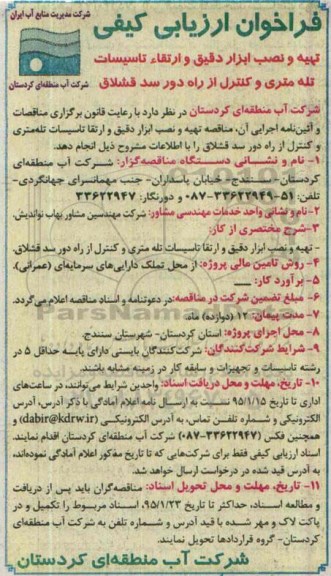 شرکت مدیریت منابع آب ایران
فراخوان ارزیابی کیفی
تهیه و نصب ابزار دقیق و ارتقاء تاسیسات
تله متری و کنترل از راه دور سد قشلاق
شرکت آب منطقه‌ای کردستان
شرکت آب منطقه‌ای کردستان در نظر دارد با رعایت قانون برگزاری مناقصات
و آئین‌نامه اجرایی آن، مناقصه تهیه و نصب ابزار دقیق و ارتقا تاسیسات تله‌متری
و کنترل از راه دور سد قشلاق را با اطلاعات مشروح ذیل انجام دهد.
۱- نام و نشانی دستگاه مناقصه‌گزار: شرکت آب منطقه‌ای
کردستان- سنندج- خیابان پاسداران- جنب مهمانسرای جهانگردی-
تلفن: ۵۱-۳۳۶۲۲۹۴۹-۰۸۷ و دورنگار: ۳۳۶۲۲۹۴۷
۲- نام و نشانی واحد خدمات مهندسی مشاور: شرکت مهندسین مشاور بهاب نواندیش.
۳- شرح مختصری از کار:
- تهیه و نصب ابزار دقیق و ارتقا تاسیسات تله متری و کنترل از راه دور سد قشلاق.
۴- روش تامین مالی پروژه: از محل تملک دارایی‌های سرمایه‌ای (عمرانی).
۵- برآورد کار: ــــ
۶- مبلغ تضمین شرکت در مناقصه: در دعوتنامه و اسناد مناقصه اعلام می‌گردد.
۷- مدت پیمان: ۱۲ (دوازده) ماه.
۸- محل اجرای پروژه: استان کردستان- شهرستان سنندج.
۹- شرایط شرکت‌کنندگان: شرکت‌کنندگان بایستی دارای پایه حداقل ۵ در
رشته تاسیسات و تجهیزات و سابقه کار در زمینه مشابه باشند.
۱۰- تاریخ، مهلت و محل دریافت اسناد: واجدین شرایط می‌توانند، در ساعت‌های
اداری تا تاریخ ۹۵/۱/۱۵ نسبت به ارسال نامه اعلام آمادگی با ذکر آدرس، آدرس
الکترونیکی و شماره تلفن تماس، به آدرس الکترونیکی (dabir@kdrw.ir) و
همچنین فکس (۳۳۶۲۲۹۴۷-۰۸۷) شرکت آب منطقه‌ای کردستان اقدام نمایند.
اسناد ارزیابی کیفی فقط برای شرکت‌هایی که تا تاریخ مذکور اعلام آمادگی نموده‌اند،
به آدرس قید شده در درخواست ارسال خواهد شد.
۱۱- تاریخ، مهلت و محل تحویل اسناد: مناقصه‌گران باید پس از دریافت
و مطالعه اسناد، حداکثر تا تاریخ ۹۵/۱/۲۳، اسناد مربوط را تکمیل و در
پاکت لاک و مهر شده با قید آدرس و شماره تلفن به شرکت آب منطقه‌ای
کردستان- گروه قراردادها تحویل نمایند.
شرکت آب منطقه‌ای کردستان